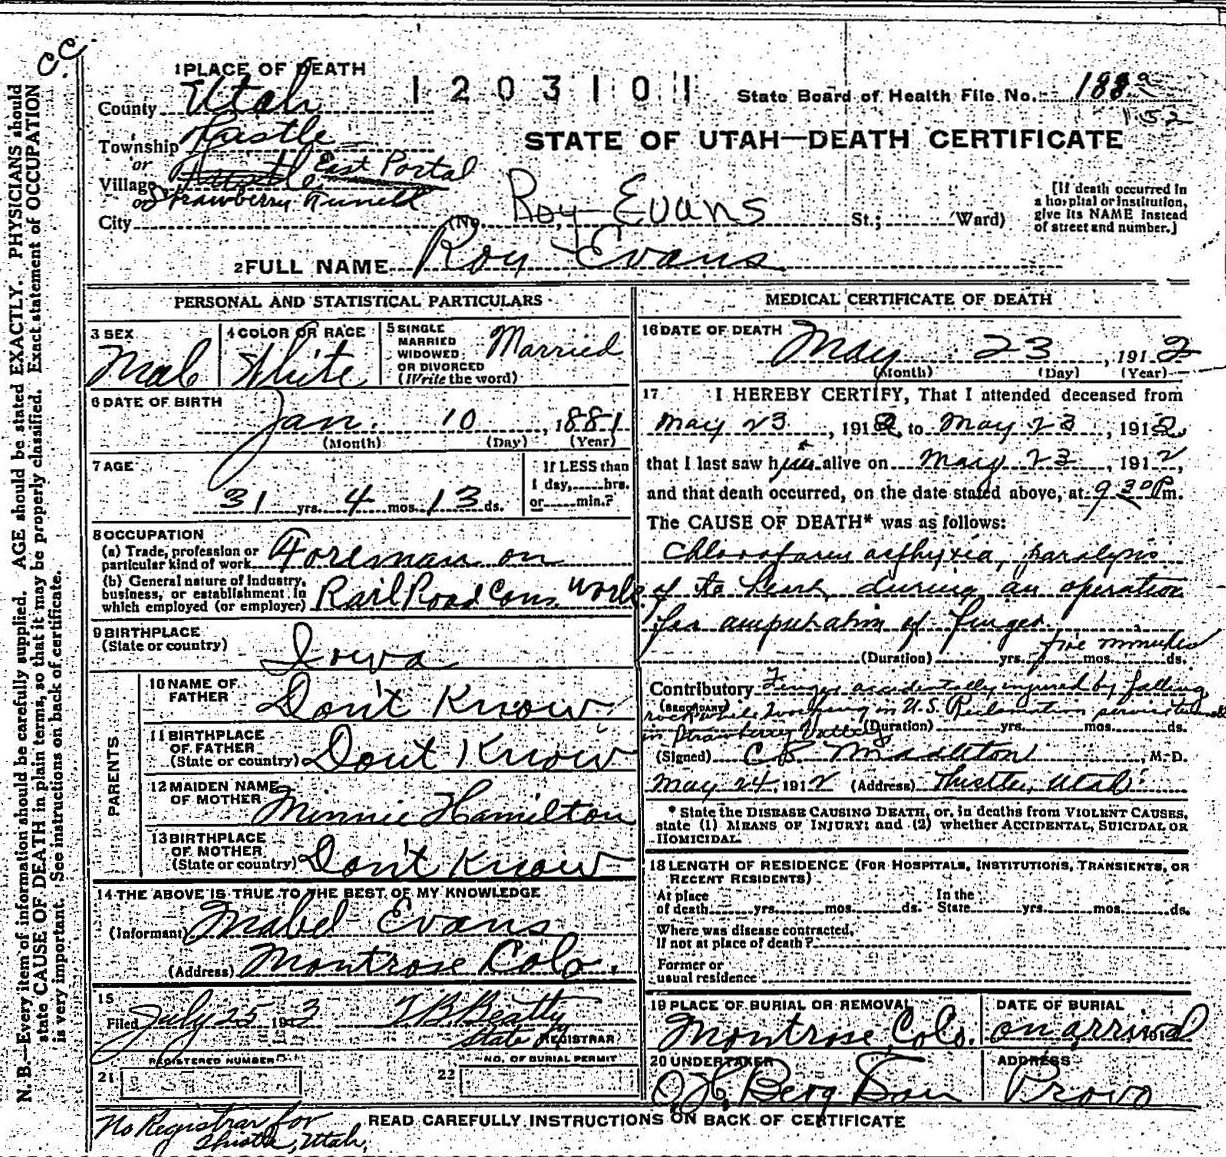 C.C.
1 PLACE OF DEATH
County Utah
1203101
State Board of Health File No. 188
152
Township Kastle
or
STATE OF UTAH—DEATH CERTIFICATE
Village East Portal
or Strawberry Tunnell
City (No. Roy Evans St.; Ward)
[If death occurred in
a hospital or institution,
give its NAME instead
of street and number.]
2 FULL NAME Roy Evans
PERSONAL AND STATISTICAL PARTICULARS
3 SEX
Male
4 COLOR OR RACE
White
5 SINGLE
MARRIED
WIDOWED
OR DIVORCED
(Write the word)
Married
6 DATE OF BIRTH
Jan. 10, 1881
(Month) (Day) (Year)
7 AGE
31 yrs. 4 mos. 13 ds.
If LESS than
1 day, hrs.
or min.?
8 OCCUPATION
(a) Trade, profession or
particular kind of work Foreman on
(b) General nature of Industry,
business, or establishment in
which employed (or employer) Rail Road Cons. work
9 BIRTHPLACE
(State or country)
Iowa
PARENTS
10 NAME OF
FATHER
Don't Know
11 BIRTHPLACE
OF FATHER
(State or country) Dont Know
12 MAIDEN NAME
OF MOTHER
Minnie Hamilton
13 BIRTHPLACE
OF MOTHER
(State or country) Don't Know
14 THE ABOVE IS TRUE TO THE BEST OF MY KNOWLEDGE
(Informant) Mabel Evans
(Address) Montrose Colo.
15
Filed July 25 1913 T.B. Beatty
State REGISTRAR
REGISTERED NUMBER
21
NO. OF BURIAL PERMIT
22
MEDICAL CERTIFICATE OF DEATH
16 DATE OF DEATH
May 23, 1912
(Month) (Day) (Year)
17 I HEREBY CERTIFY, That I attended deceased from
May 23, 1912, to May 23, 1912,
that I last saw him alive on May 23, 1912,
and that death occurred, on the date stated above, at 9 30 P.m.
The CAUSE OF DEATH* was as follows:
Chloroform asphyxia, paralysis
of the heart during an operation
for amputation of finger
(Duration) yrs. mos. ds.
five minutes
Contributory Finger accidentally injured by falling
(SECONDARY)
rock while working in U.S. Reclamation service tunnel
in Strawberry Valley (Duration) yrs. mos. ds.
(Signed) C.B. Middleton, M.D.
May 24, 1912 (Address) Thistle, Utah
* State the DISEASE CAUSING DEATH, or, in deaths from VIOLENT CAUSES,
state (1) MEANS OF INJURY; and (2) whether ACCIDENTAL, SUICIDAL OR
HOMICIDAL.
18 LENGTH OF RESIDENCE (FOR HOSPITALS, INSTITUTIONS, TRANSIENTS, OR
RECENT RESIDENTS)
At place
of death yrs. mos. ds.
In the
State yrs. mos. ds.
Where was disease contracted,
If not at place of death?
Former or
usual residence
19 PLACE OF BURIAL OR REMOVAL
Montrose, Colo.
DATE OF BURIAL
on arrival
191
20 UNDERTAKER
O.H. Berg & Son
ADDRESS
Provo
No Registrar for
Thistle, Utah.
READ CAREFULLY INSTRUCTIONS ON BACK OF CERTIFICATE
N. B.—Every item of information should be carefully supplied. AGE should be stated EXACTLY. PHYSICIANS should
state CAUSE OF DEATH in plain terms, so that it may be properly classified. Exact statement of OCCUPATION
is very important. See instructions on back of certificate.